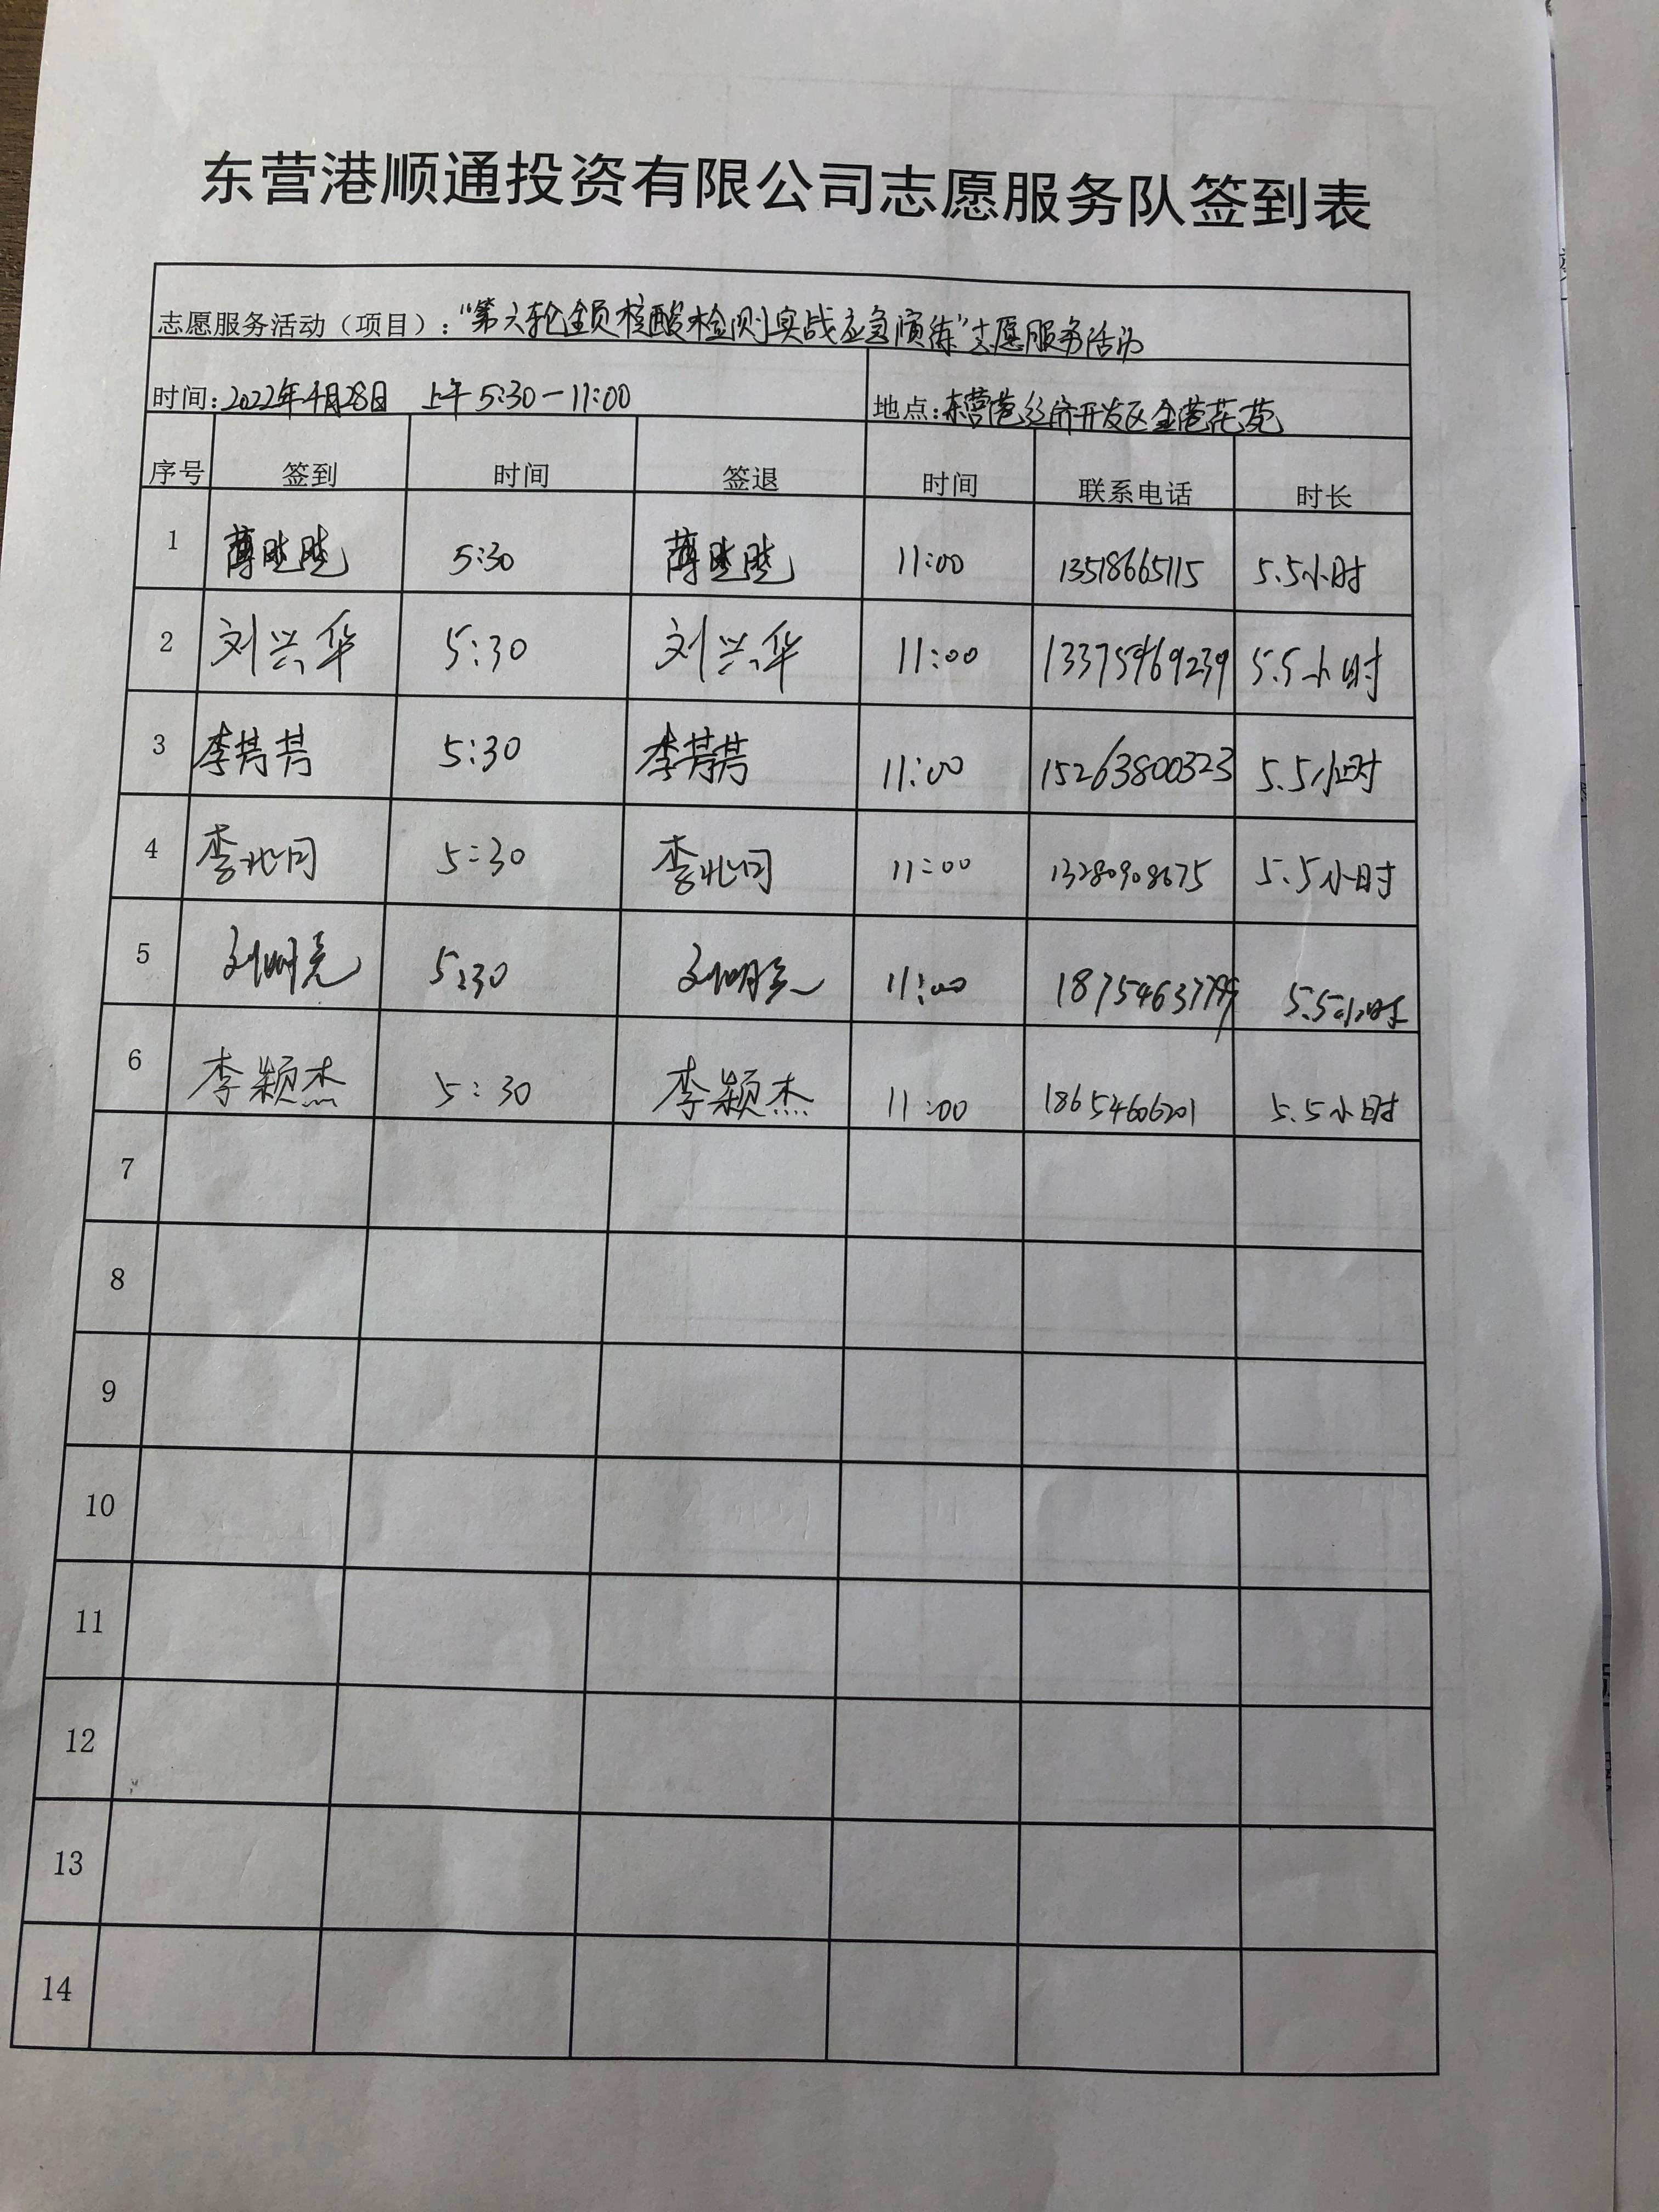 东营港顺通投资有限公司志愿服务队签到表
志愿服务活动（项目）：“第六轮全员核酸检测实战应急演练”志愿服务活动
时间：2022年4月28日 上午5:30-11:00 地点：东营港经济开发区金港花苑
序号 签到 时间 签退 时间 联系电话 时长
1 薄 5:30 薄 11:00 13518665115 5.5小时
2 刘兴华 5:30 刘兴华 11:00 13375469239 5.5小时
3 李芳芳 5:30 李芳芳 11:00 15263800323 5.5小时
4 李 5:30 李 11:00 13280908675 5.5小时
5 刘明亮 5:30 刘明亮 11:00 5.5小时
6 李颖杰 5:30 李颖杰 11:00 18654606201 5.5小时
7
8
9
10
11
12
13
14